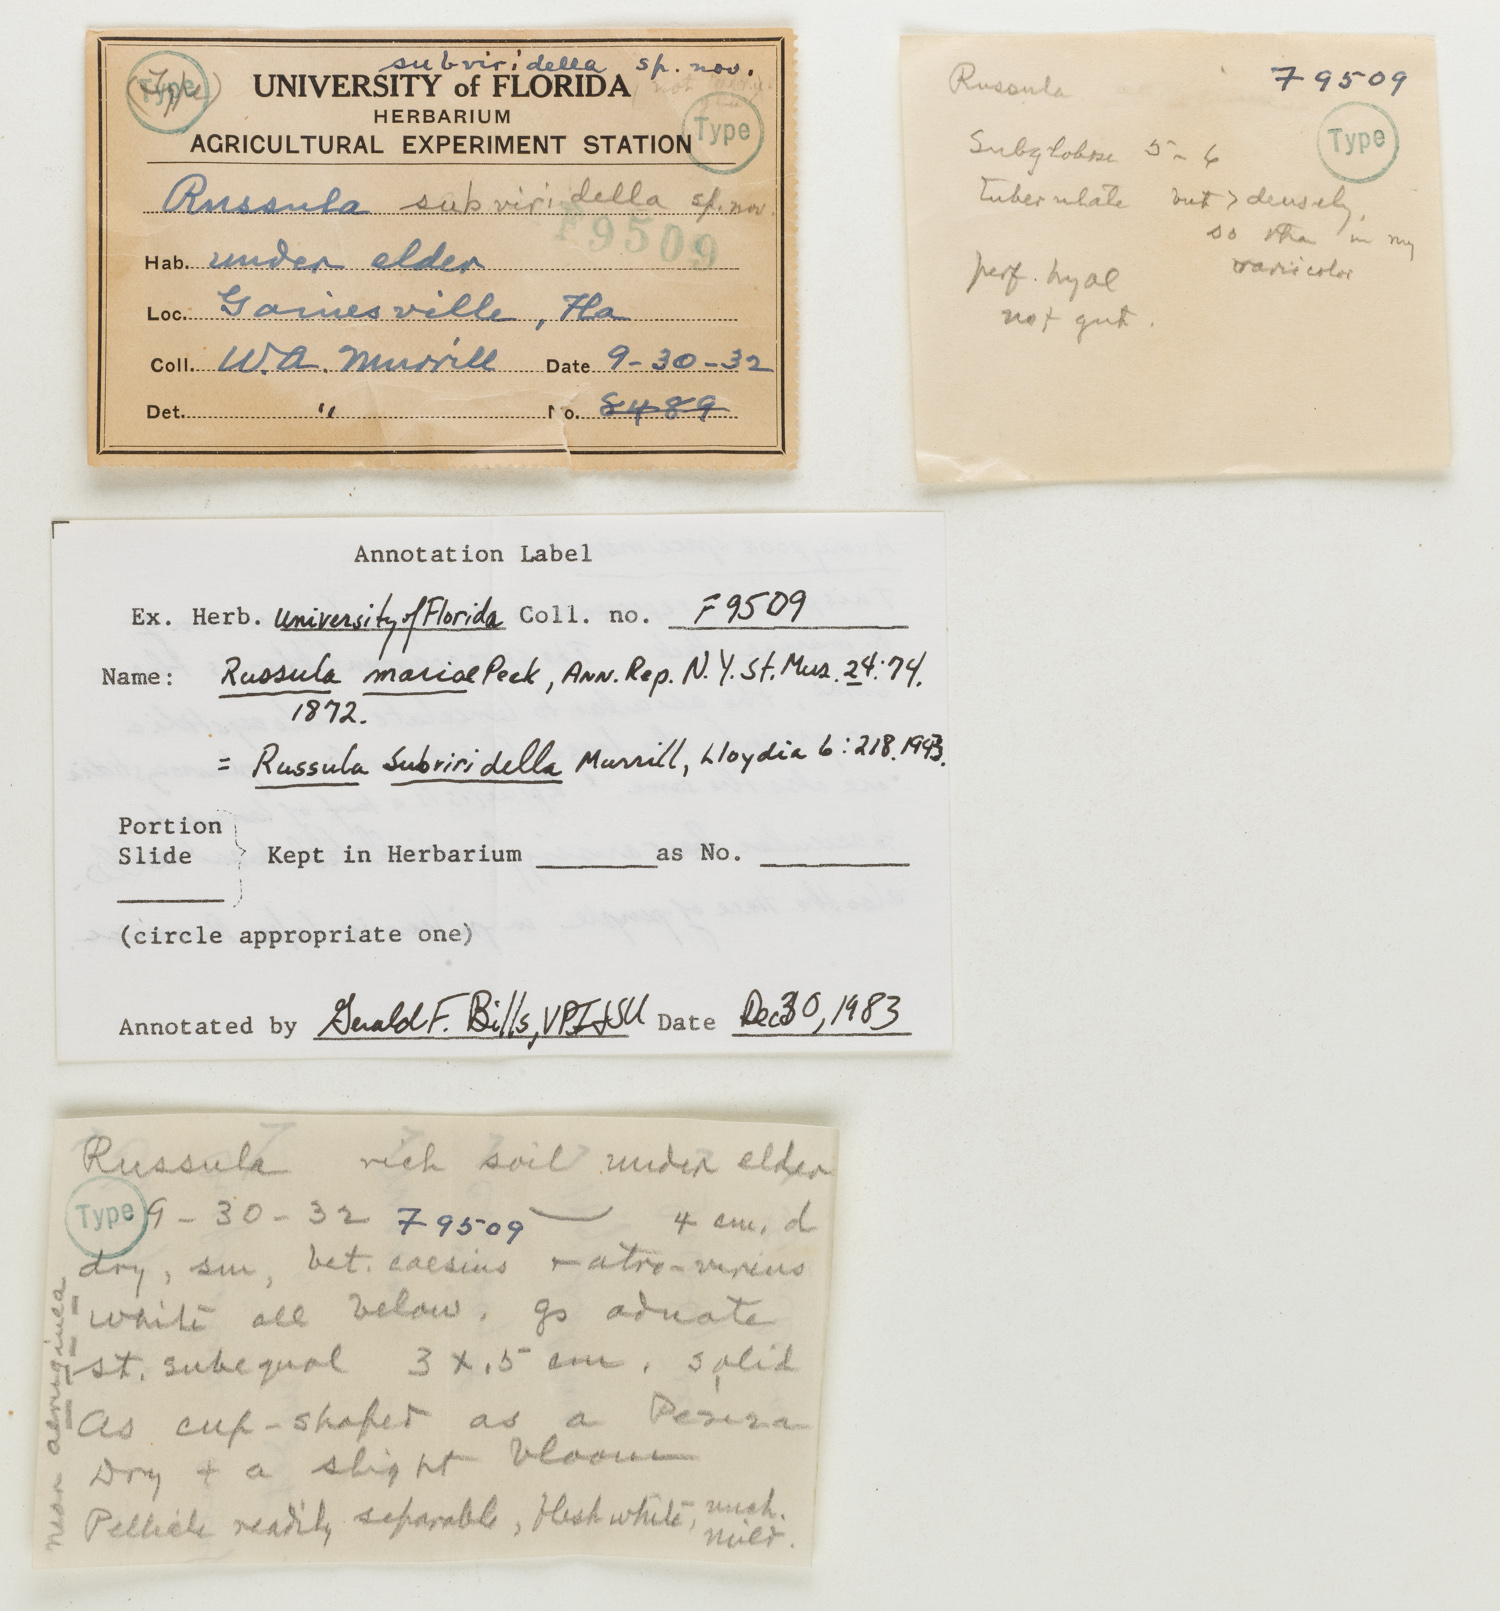 subviridella sp. nov.
(Type)
Type
UNIVERSITY of FLORIDA
HERBARIUM
Type
AGRICULTURAL EXPERIMENT STATION
Russula subviridella sp. nov.
F9509
Hab. under elder
Loc. Gainesville, Fla
Coll. W.A. Murrill Date 9-30-32
Det. " No. 8489
Russula F9509
Type
Subglobose 5-6
tuberculate but > densely,
so than in my
variicolor
perf. hyal
not gut.
Annotation Label
Ex. Herb. University of Florida Coll. no. F9509
Name: Russula mariae Peck, Ann. Rep. N.Y. St. Mus. 24:74.
1872.
= Russula subviridella Murrill, Lloydia 6:218.1943.
Portion
Slide
Kept in Herbarium as No.
(circle appropriate one)
Annotated by Gerald F. Bills, VPI&SU Date Dec 30, 1983
Russula rich soil under elder
Type 9-30-32 F9509 4 cm. d
dry, sm, bet. caesius + atro-virens
white all below. gs adnate
st. subequal 3 x .5 cm. solid
As cup-shaped as a Peziza
Dry + a slight bloom
Pellicle readily separable, flesh white, unch.
mild.
near aeruginea